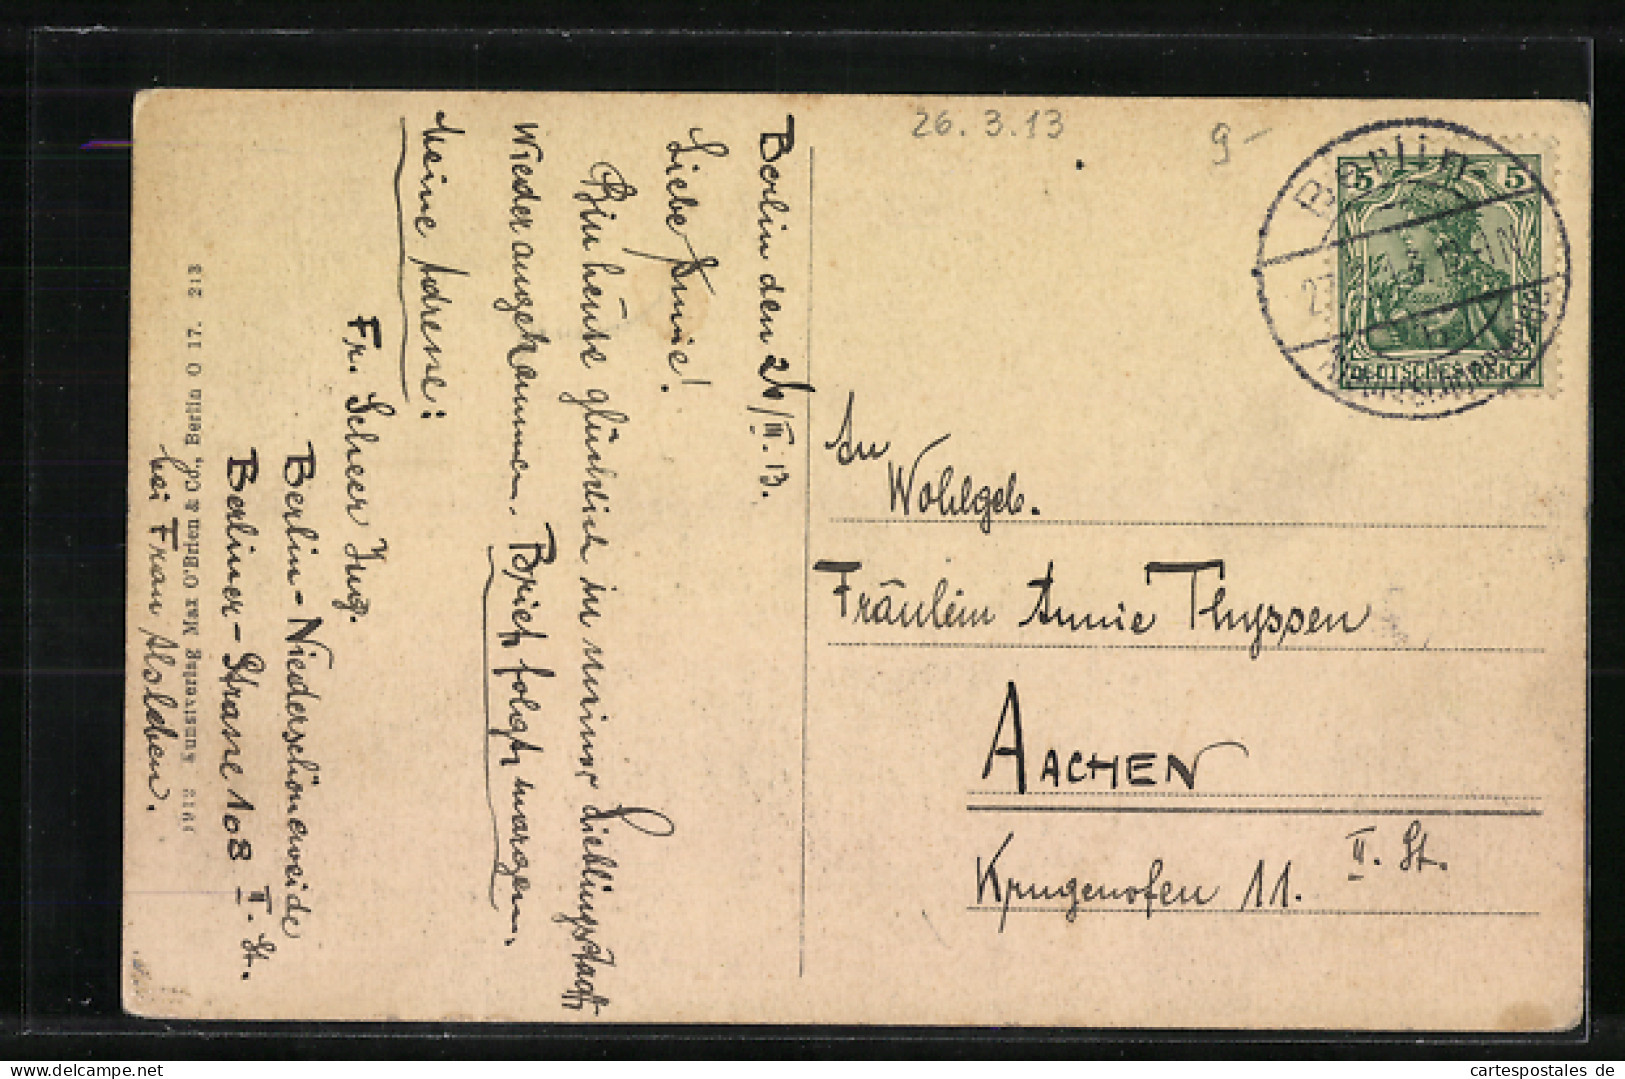 26. 3. 13
9-
Berlin
5 5
DEUTSCHES REICH
Berlin den 26/III. 13.
Liebe Annie!
Bin heute glücklich in meiner Lieblingsstadt
wieder angekommen. Brief folgt morgen.
Meine Adresse:
Fr. Scheer Jng.
Berlin-Niederschöneweide
Berliner-Strasse 108 I. St.
bei Frau Alsleben.
212 Kunstverlag Max O'Brien & Co., Berlin O 17. 213
An
Wohlgeb.
Fräulein Annie Thyssen
AACHEN
Krugenofen 11. II. St.
cartespostales de